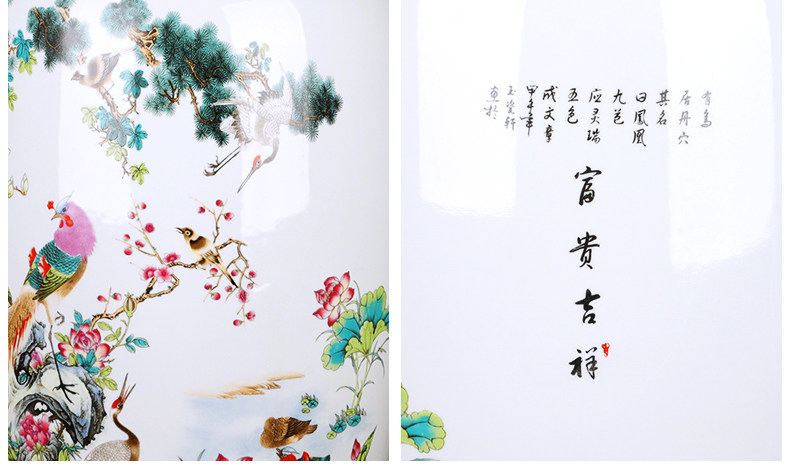 有鸟
居丹穴
其名
曰鳳凰
九苞
应灵瑞
五色
成文章
甲午年
玉瓷轩
画於
富贵吉祥